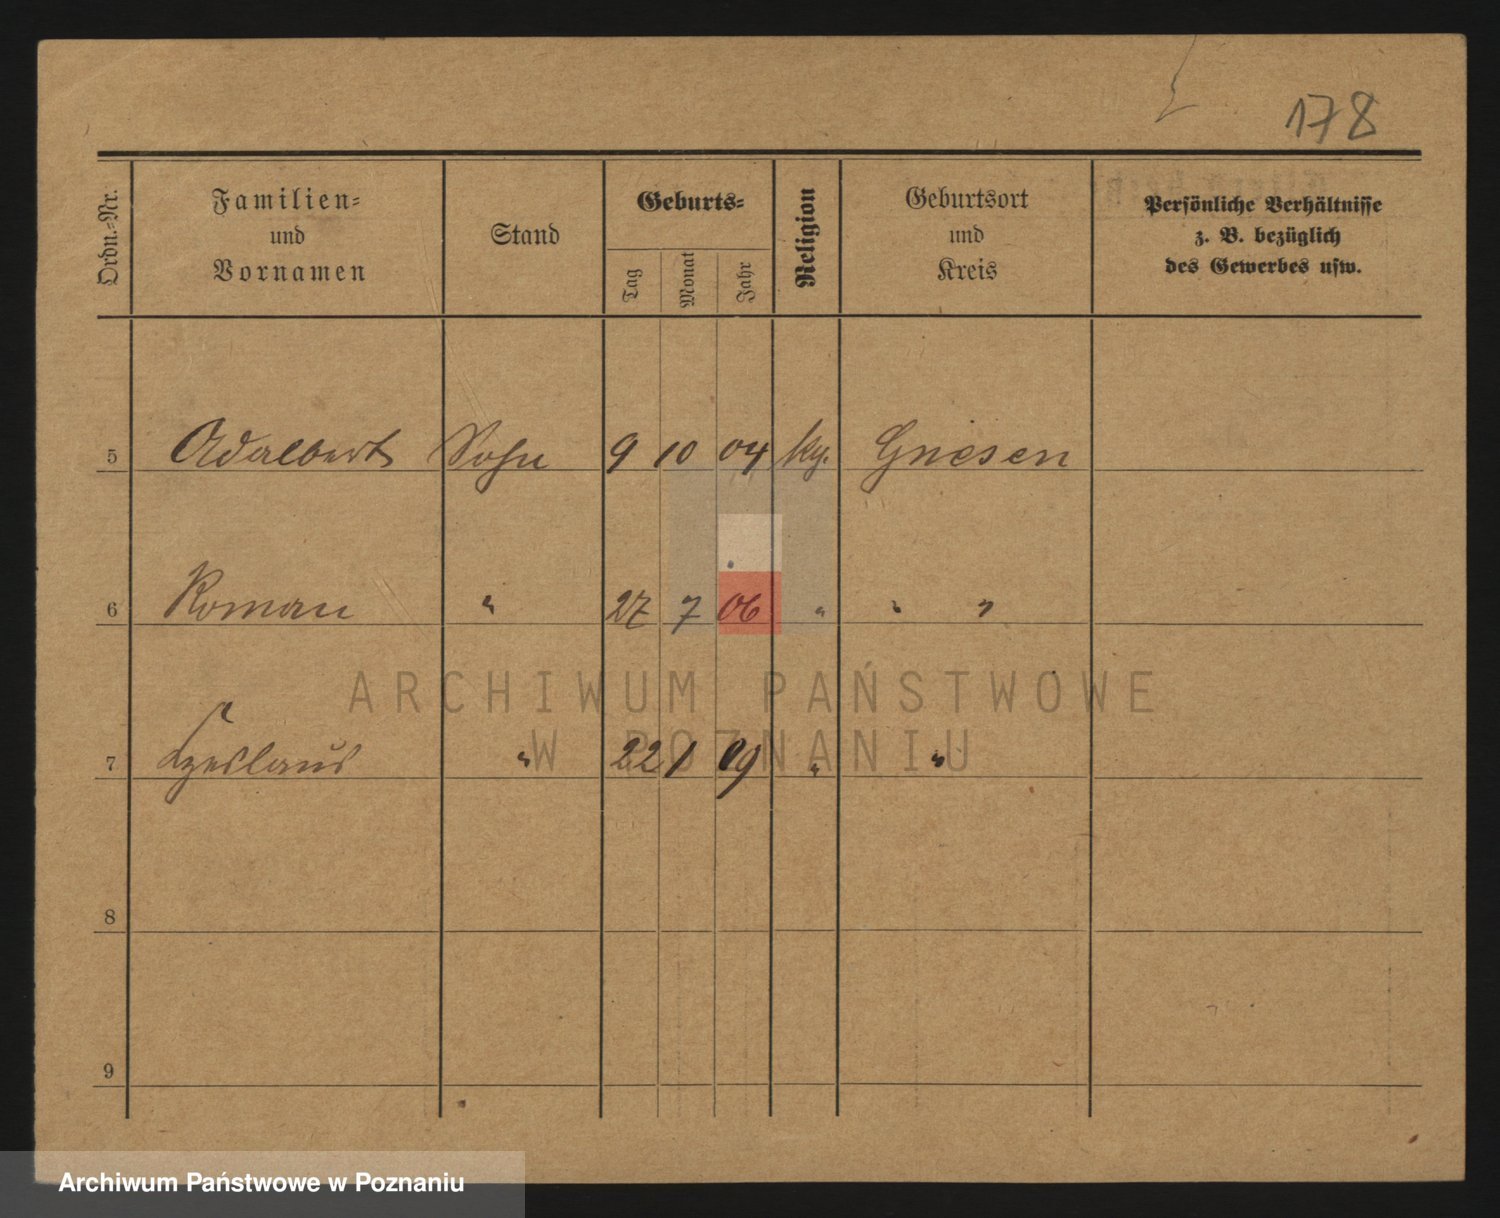 178
Ordn.-Nr.
Familien=
und
Vornamen
Stand
Geburts=
Tag
Monat
Jahr
Religion
Geburtsort
und
Kreis
Persönliche Verhältnisse
z. B. bezüglich
des Gewerbes usw.
5 Adalbert Sohn 9 10 04 Gnesen
6 Roman " 27 7 06 " " "
7 Czeslaus " 22 1 09 " "
8
9
ARCHIWUM PAŃSTWOWE
W POZNANIU
Archiwum Państwowe w Poznaniu